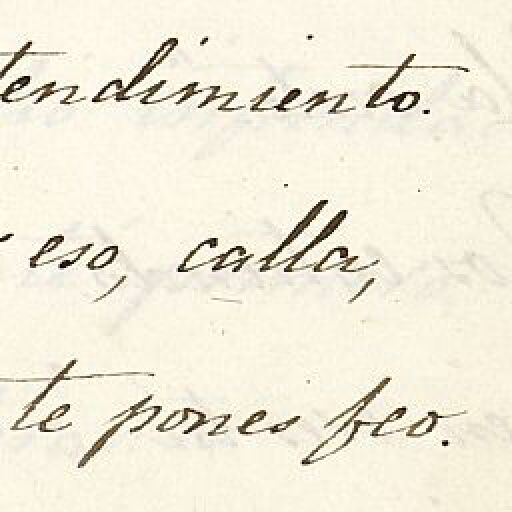 tendimiento.
eso, calla,
te pones feo.